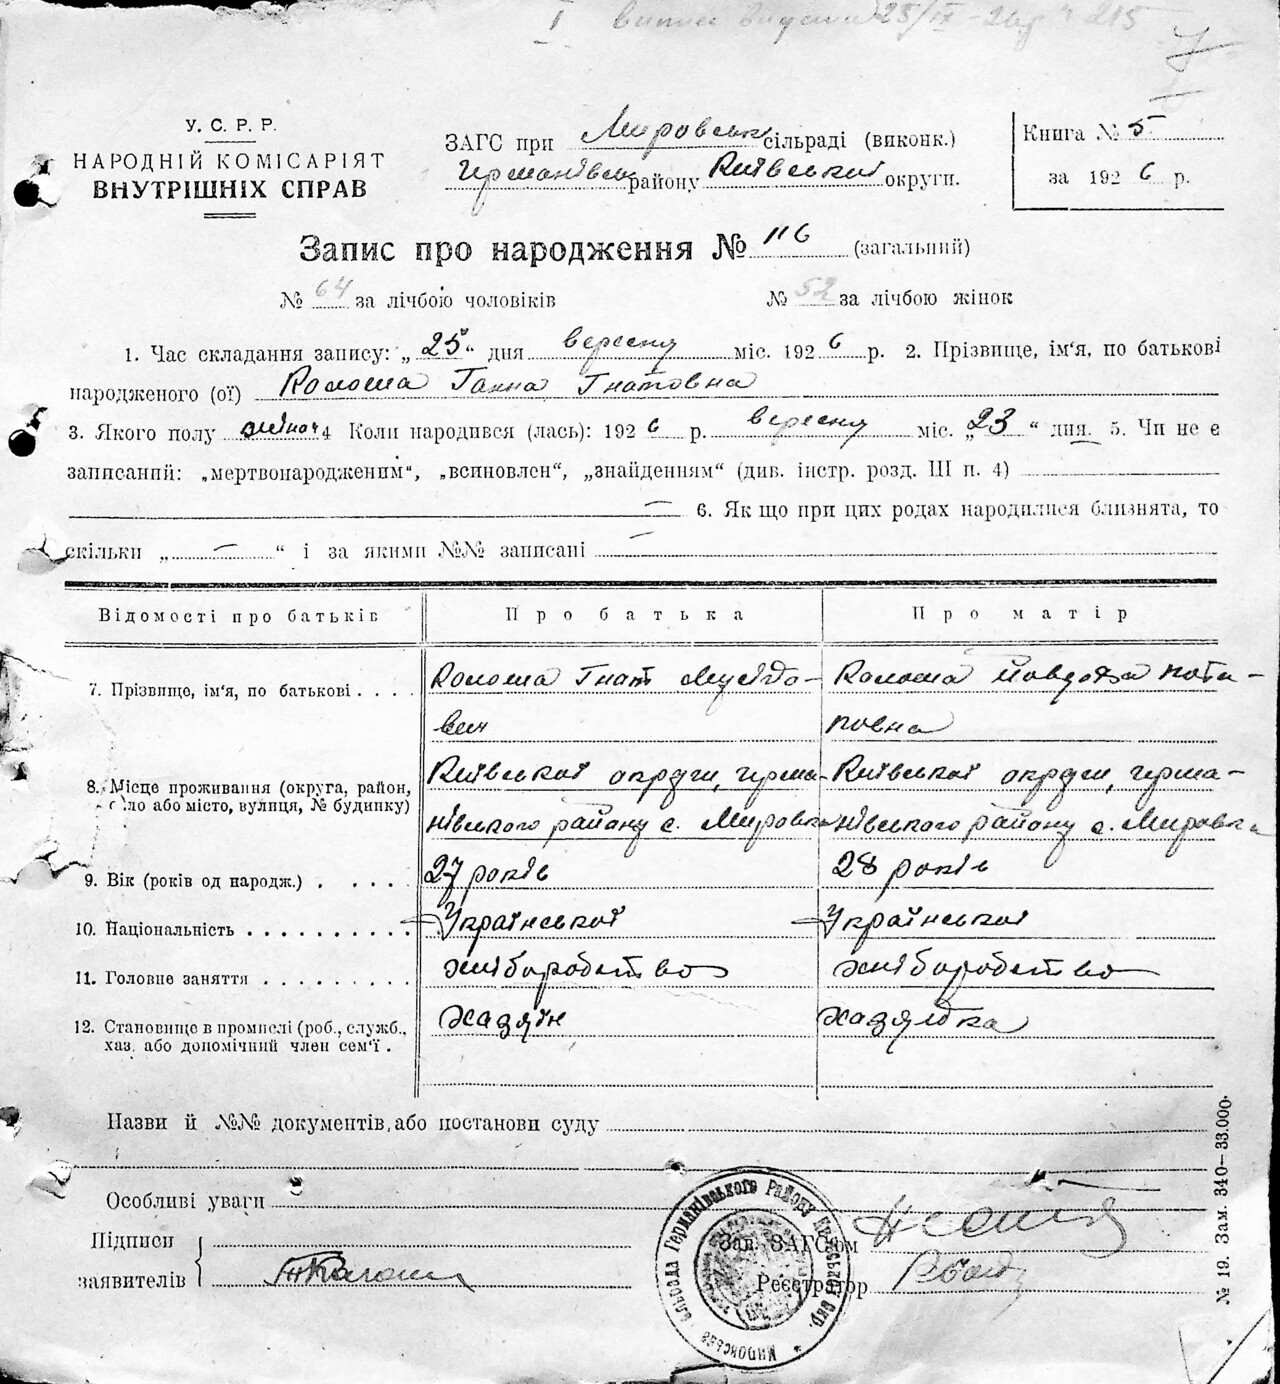 У. С. Р. Р.
НАРОДНІЙ КОМІСАРІЯТ
ВНУТРІШНІХ СПРАВ
ЗАГС при Мировськ сільраді (виконк.)
району Київської округи.
Книга № 5
за 1926 р.
Запис про народження № 116 (загальний)
№ 64 за лічбою чоловіків № 52 за лічбою жінок
1. Час складання запису: „25“ дня вересня міс. 1926 р. 2. Прізвище, ім'я, по батькові
народженого (ої) Колоша Ганна Гнатовна
3. Якого полу жіноч 4 Коли народився (лась): 1926 р. вересня міс. „23“ дня. 5. Чи не є
записаний: „мертвонародженим“, „всиновлен“, „знайденням“ (див. інстр. розд. III п. 4)
— 6. Як що при цих родах народилися близнята, то
скільки „ — “ і за якими №№ записані —
Відомості про батьків Про батька Про матір
7. Прізвище, ім'я, по батькові . . . . Колоша Гнат Колоша Йовдоха Пота-
повна
8. Місце проживання (округа, район, село або місто, вулиця, № будинку) Київської округи, Герма- Київської округи, Герма-
нівського району с. Мировка нівського району с. Мировка
9. Вік (років од народж.) . . . . . 27 років 28 років
10. Національність . . . . . . . . . . Української Української
11. Головне заняття . . . . . . . . . хліборобство хліборобство
12. Становище в промислі (роб., служб., хаз. або допомічний член сем'ї . хазяїн хазяйка
Назви й №№ документів, або постанови суду
Особливі уваги
Підписи
заявителів
Зав. ЗАГС'ом
Реєстратор
Германівського Району
№ 19. Зам. 340—33.000.